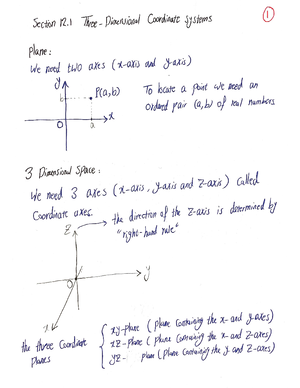 Section 12.1 Three-Dimensional Coordinate Systems
1
Plane:
We need two axes (x-axis and y-axis)
y
b
P(a,b)
O
a
x
To locate a point we need an
ordered pair (a,b) of real numbers
3 Dimensional Space:
We need 3 axes (x-axis, y-axis and z-axis) called
Coordinate axes.
z
the direction of the z-axis is determined by
"right-hand rule"
O
y
x
the three Coordinate
Planes
xy-plane (plane containing the x- and y-axes)
xz-plane (plane containing the x- and z-axes)
yz- plane (plane containing the y and z-axes)